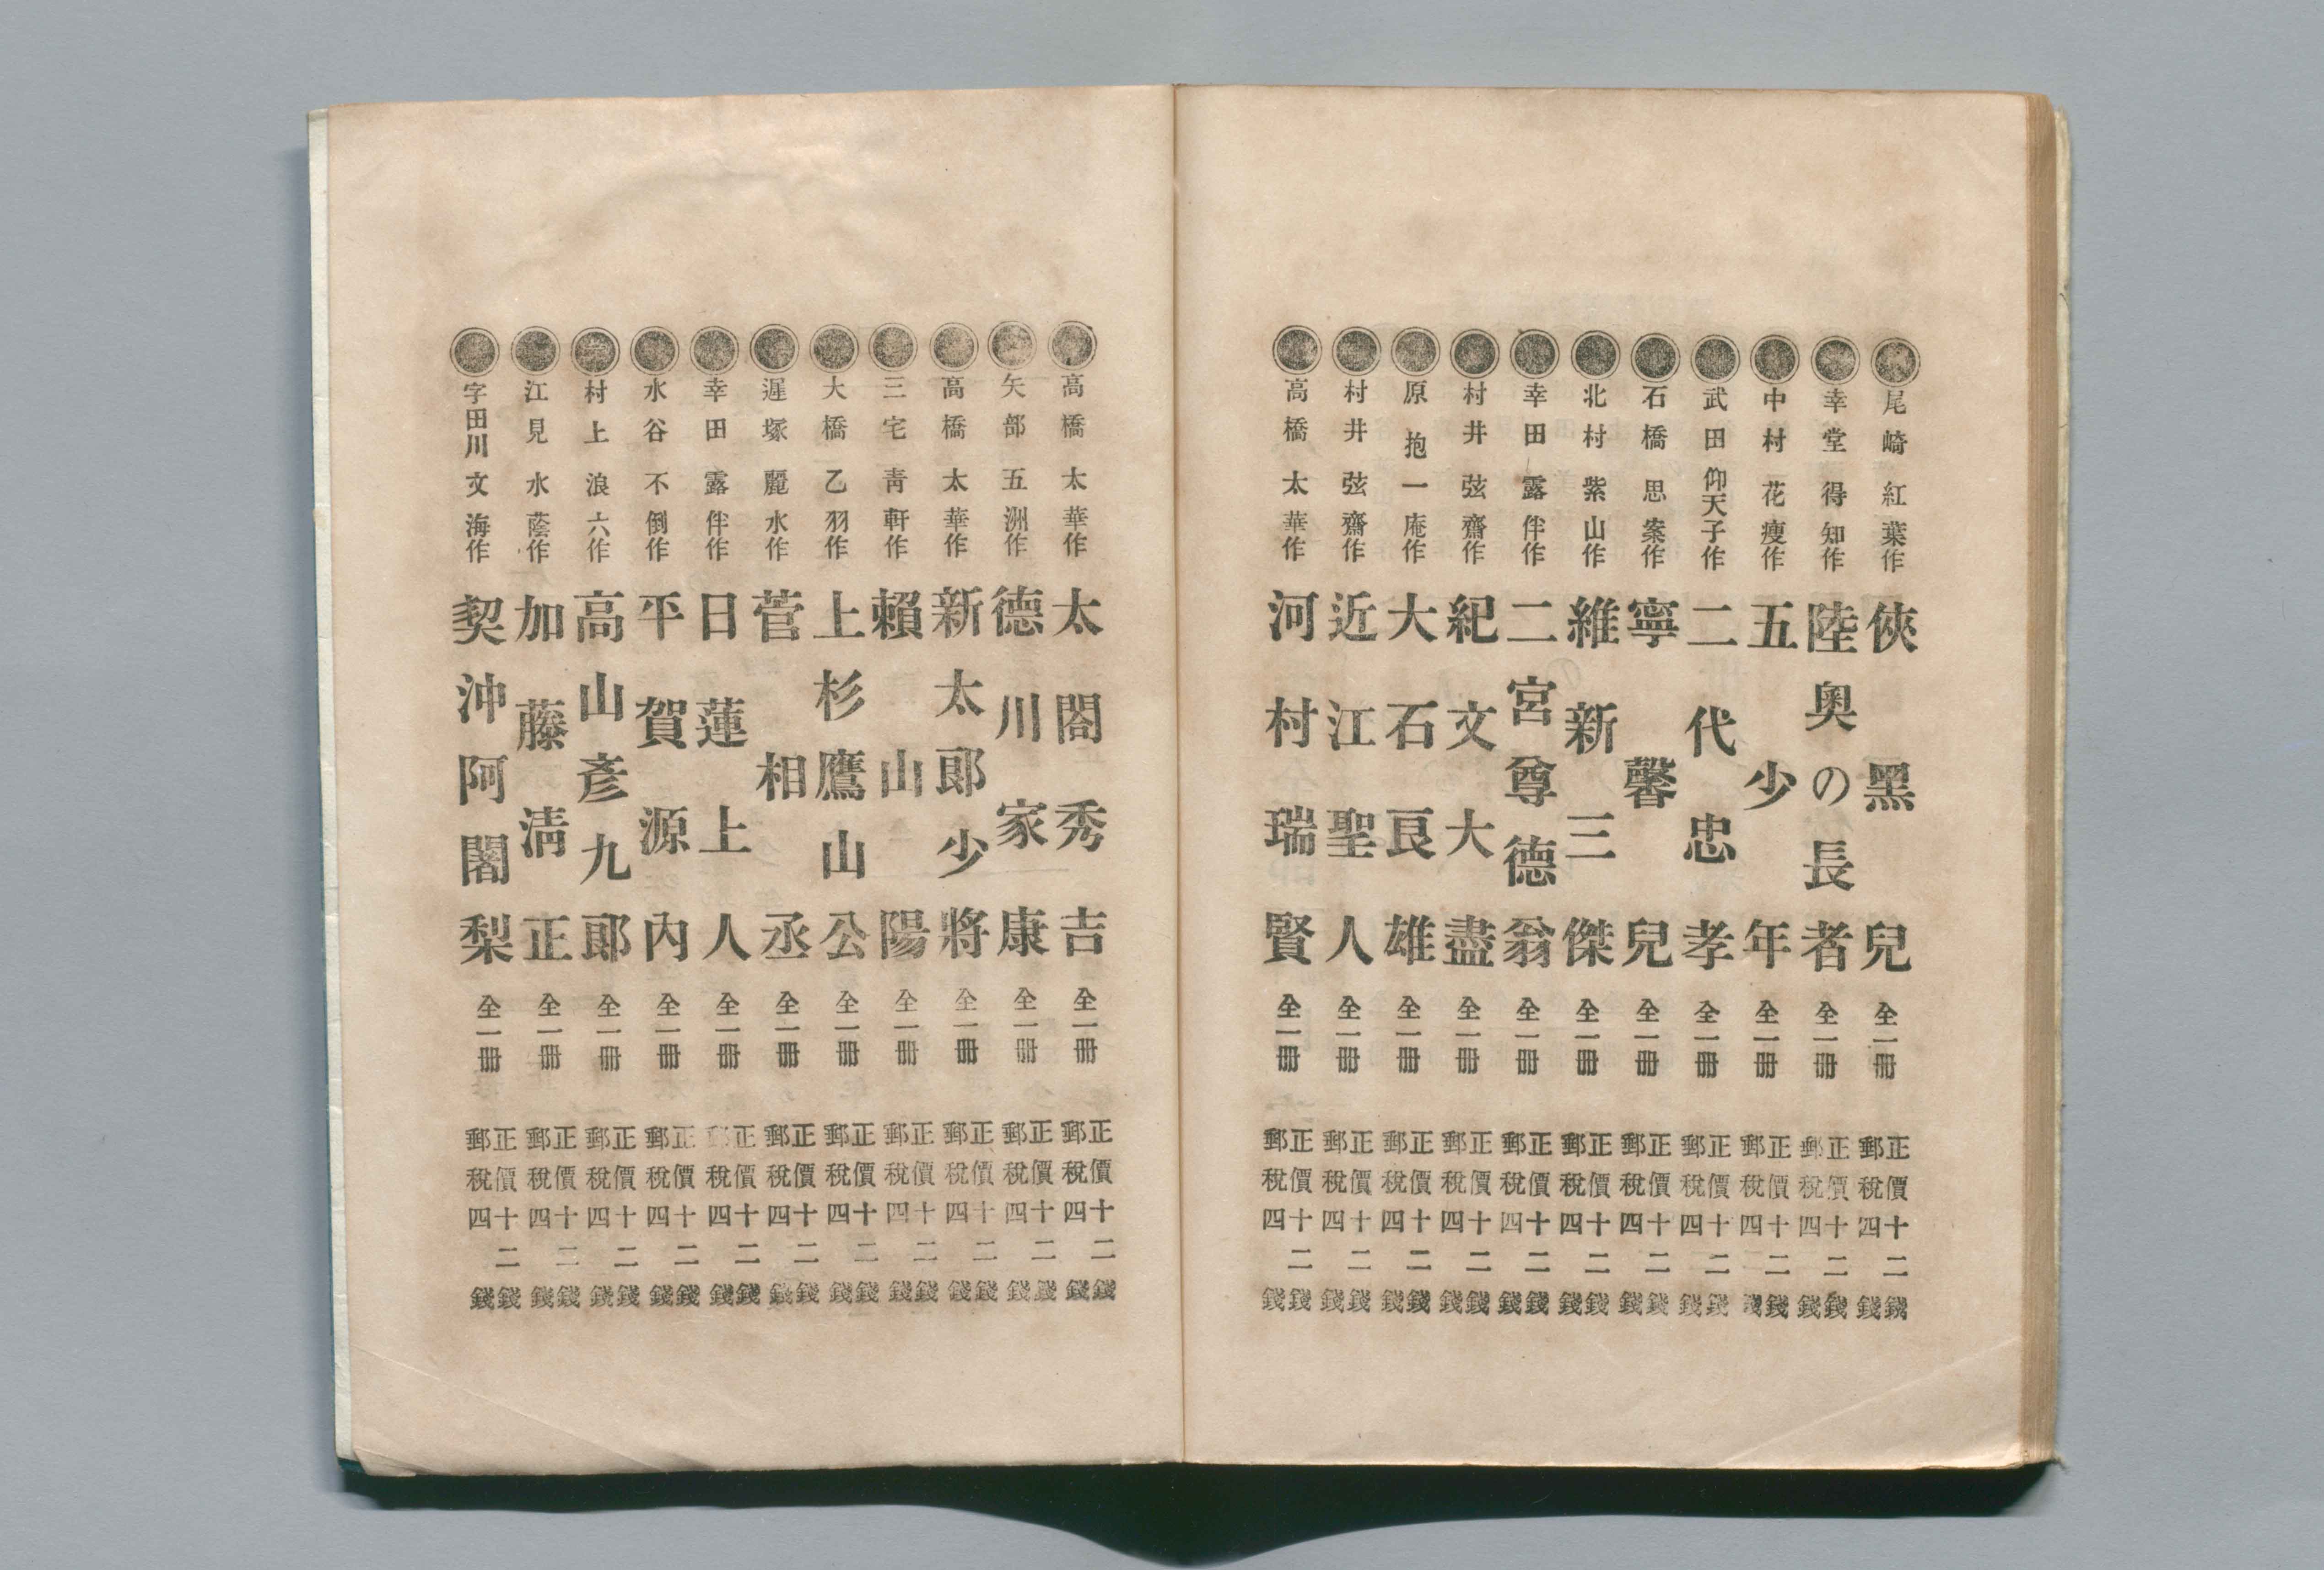 尾崎紅葉作 俠黑兒 全一冊 正價十二錢 郵稅四錢
幸堂得知作 陸奧の長者 全一冊 正價十二錢 郵稅四錢
中村花瘦作 五少年 全一冊 正價十二錢 郵稅四錢
武田仰天子作 二代忠孝 全一冊 正價十二錢 郵稅四錢
石橋思案作 寧馨兒 全一冊 正價十二錢 郵稅四錢
北村紫山作 維新三傑 全一冊 正價十二錢 郵稅四錢
幸田露伴作 二宮尊德翁 全一冊 正價十二錢 郵稅四錢
村井弦齋作 紀文大盡 全一冊 正價十二錢 郵稅四錢
原抱一庵作 大石良雄 全一冊 正價十二錢 郵稅四錢
村井弦齋作 近江聖人 全一冊 正價十二錢 郵稅四錢
高橋太華作 河村瑞賢 全一冊 正價十二錢 郵稅四錢
高橋太華作 太閤秀吉 全一冊 正價十二錢 郵稅四錢
矢部五洲作 德川家康 全一冊 正價十二錢 郵稅四錢
高橋太華作 新太郎少將 全一冊 正價十二錢 郵稅四錢
三宅靑軒作 賴山陽 全一冊 正價十二錢 郵稅四錢
大橋乙羽作 上杉鷹山公 全一冊 正價十二錢 郵稅四錢
遲塚麗水作 菅相丞 全一冊 正價十二錢 郵稅四錢
幸田露伴作 日蓮上人 全一冊 正價十二錢 郵稅四錢
水谷不倒作 平賀源內 全一冊 正價十二錢 郵稅四錢
村上浪六作 高山彥九郎 全一冊 正價十二錢 郵稅四錢
江見水蔭作 加藤淸正 全一冊 正價十二錢 郵稅四錢
字田川文海作 契沖阿闍梨 全一冊 正價十二錢 郵稅四錢